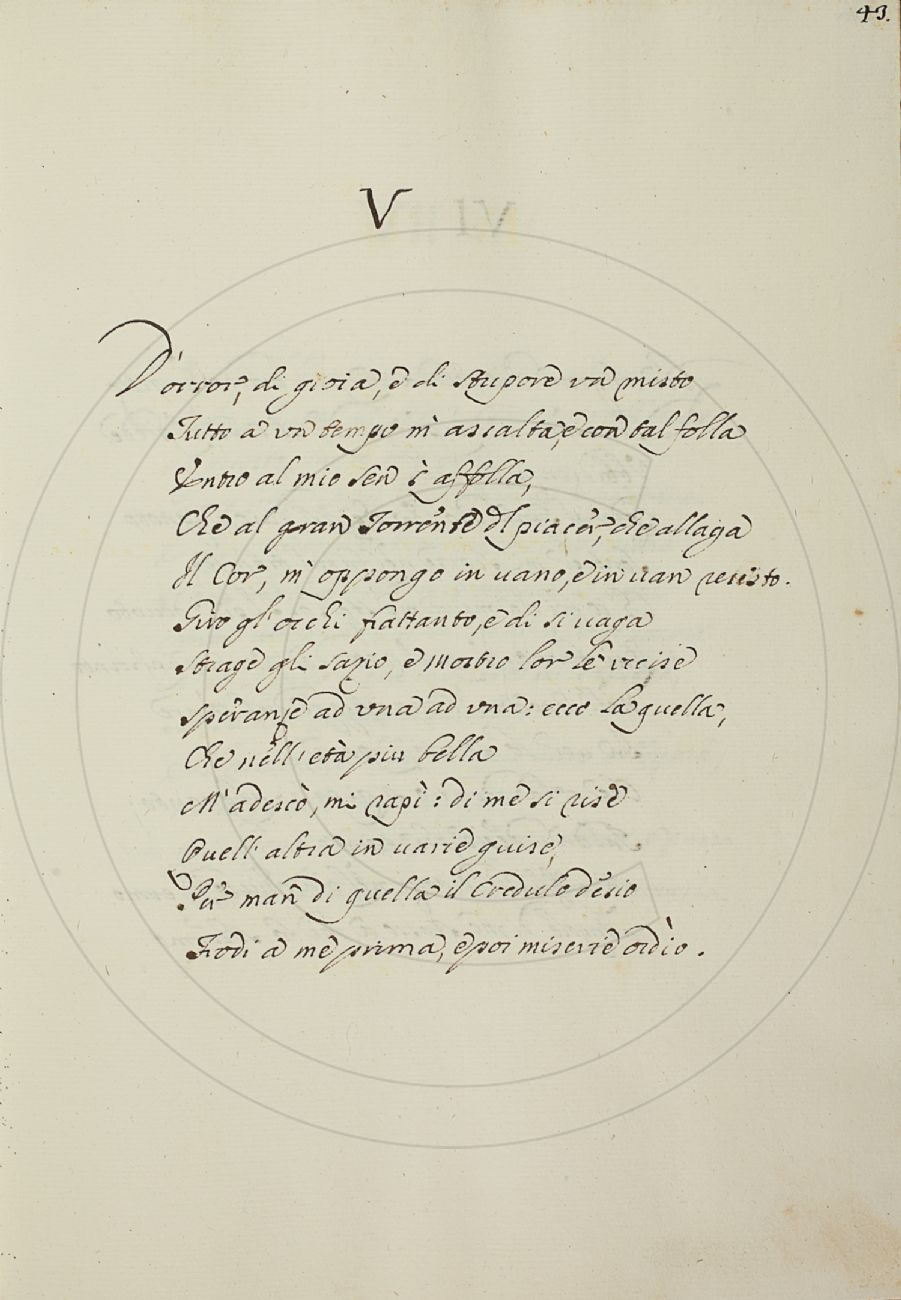 43.
V
D'orror, di gioia, e di stupore vn misto
Tutto a vn tempo m' assalta, e con tal folla
Entro al mio sen s' affolla,
Che al gran Torrente del piacer, che allaga
Il Cor, m' oppongo in uano, e in uan resisto.
Giro gl' occhi frattanto, e di si uaga
Strage gli sazio, e mostro lor le vccise
speranze ad vna ad vna: ecco là quella,
Che nell' età piu bella
M' adescò, mi rapì: di me si rise
Quell' altra in uarie guise,
Per man di quella il Credulo desio
Frodi a me prima, e poi miserie ordìo.